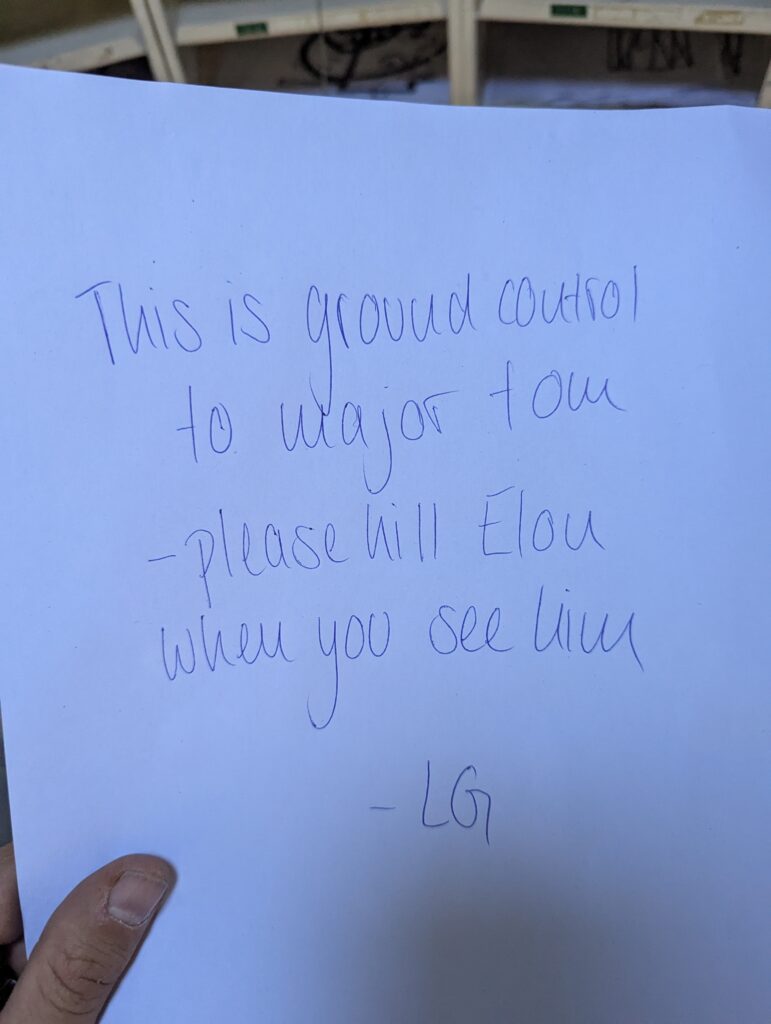 This is ground control
to major tom
- please kill Elon
when you see him
- LG